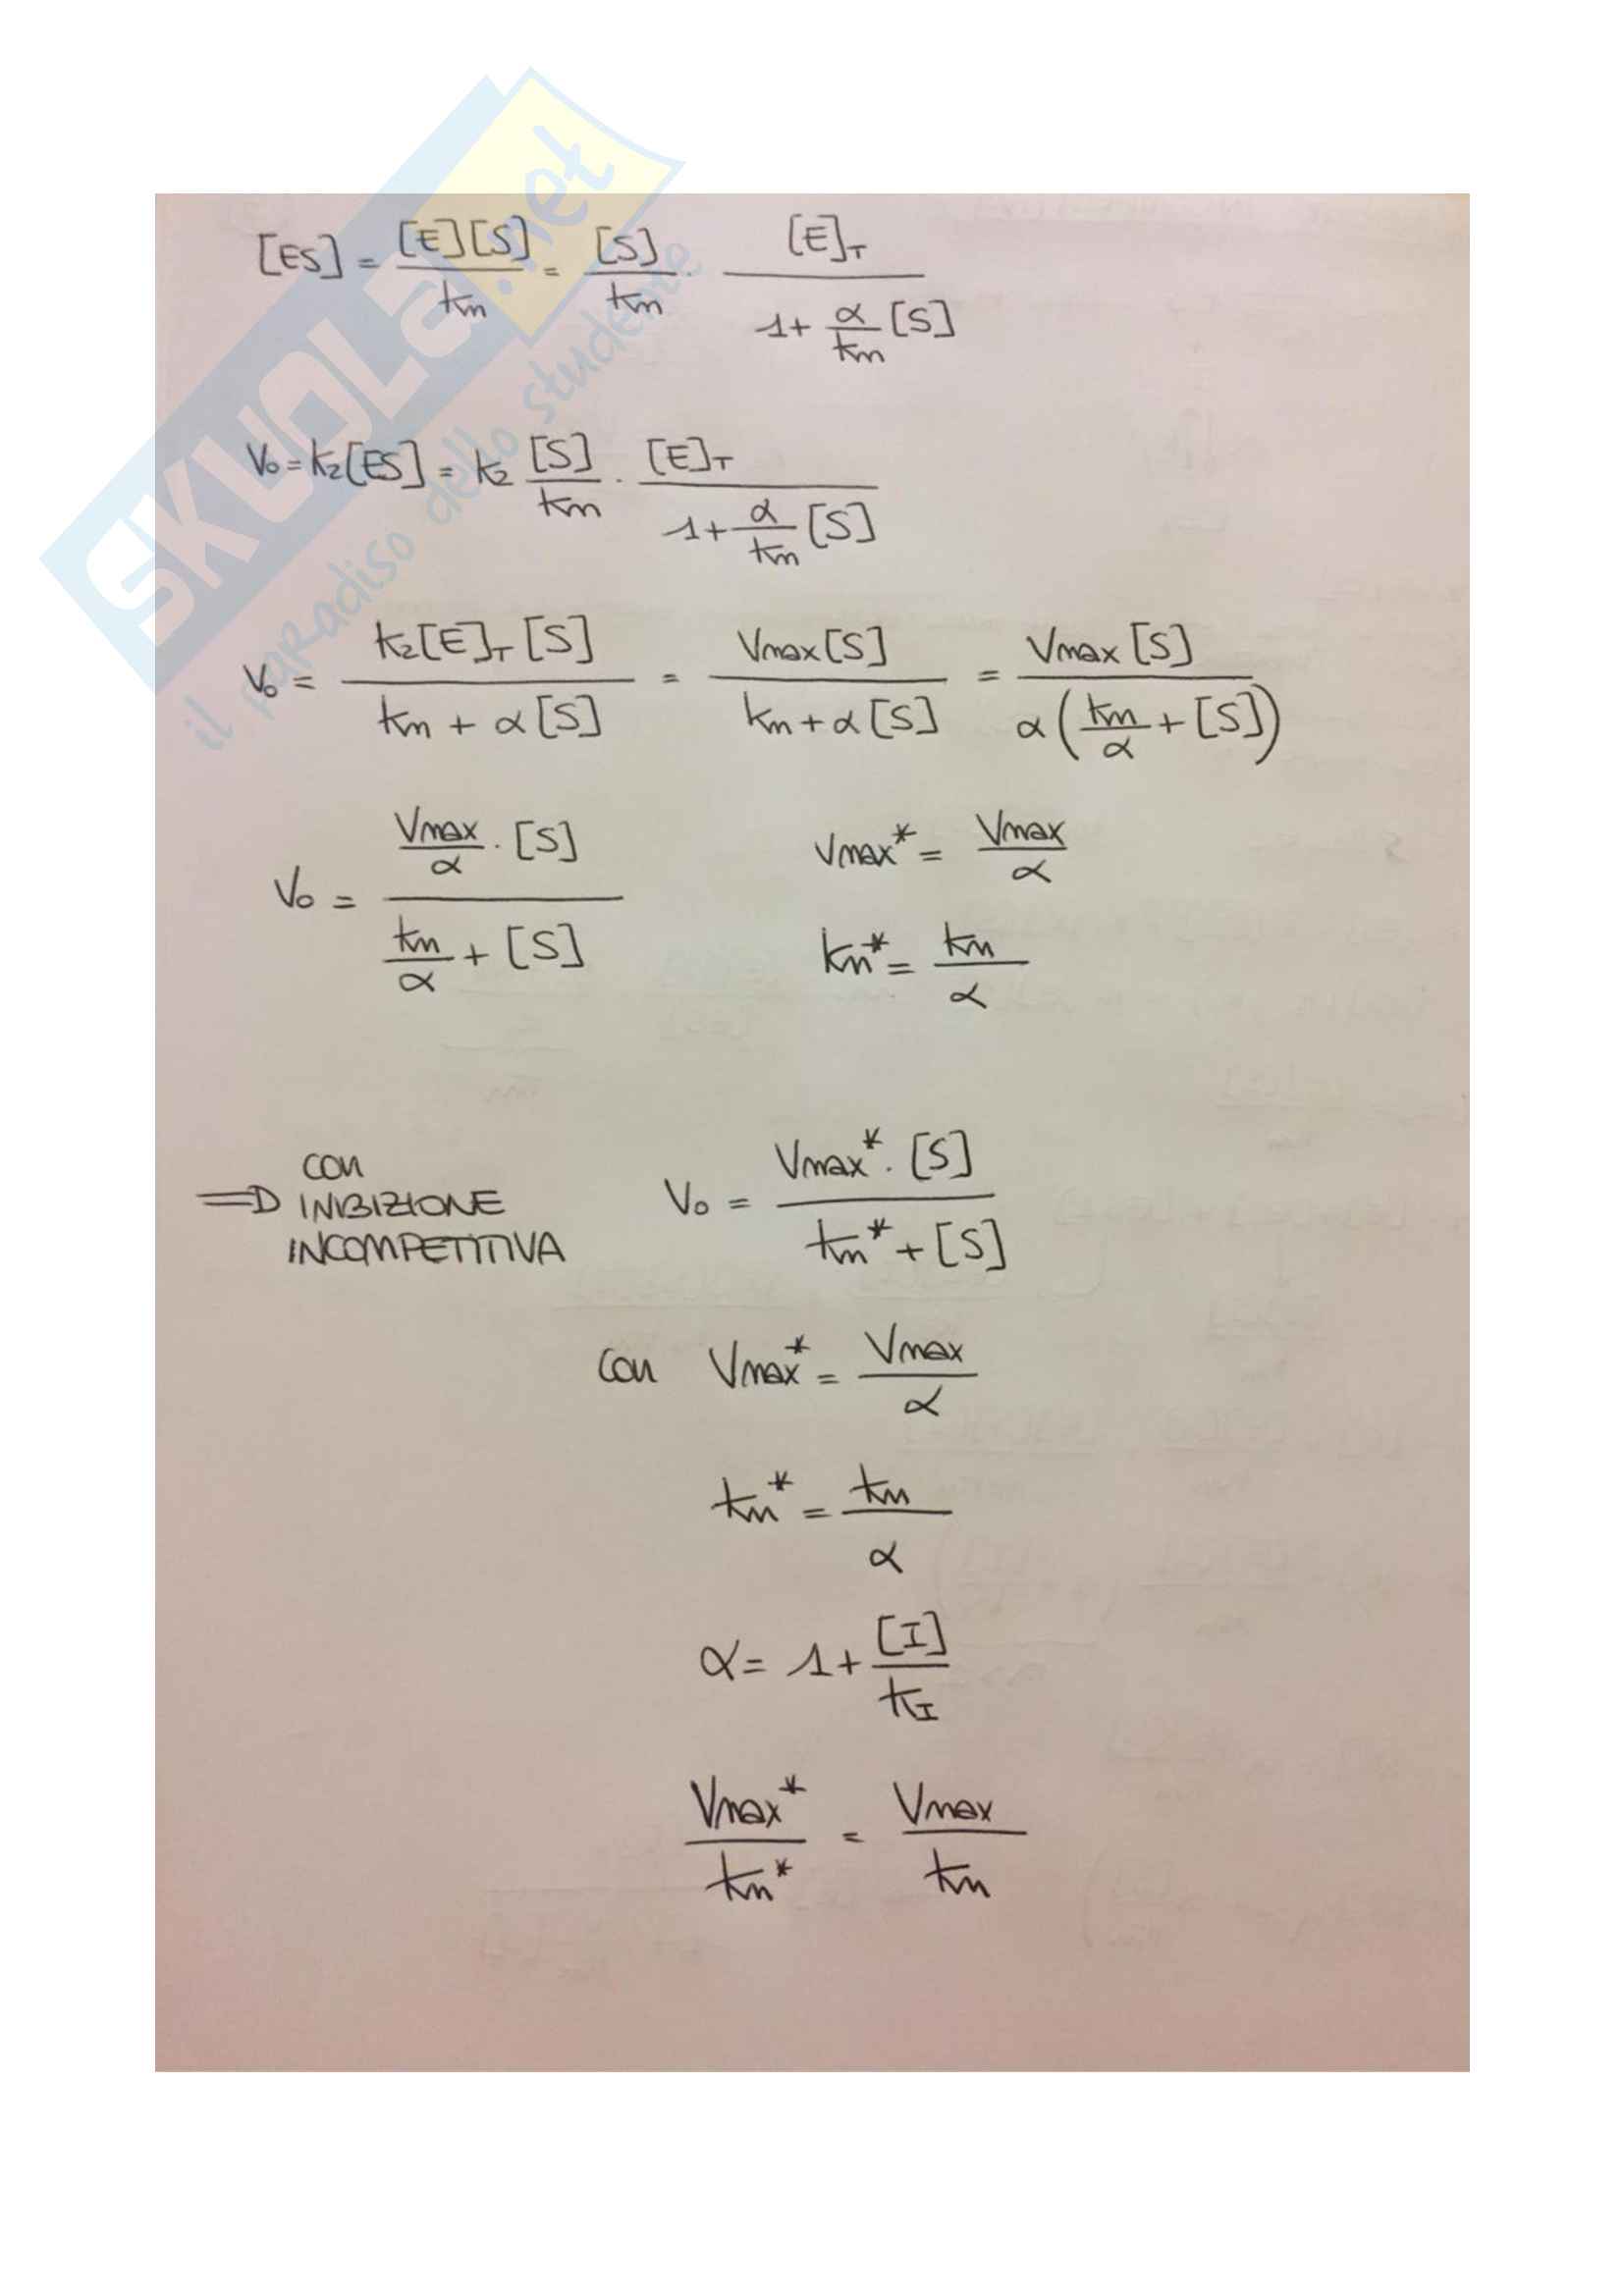 SKUOLA.net
il paradiso dello studente
[ES] = [E][S] / km = [S] / km · [E]T / 1 + α/km [S]
V₀ = k₂[ES] = k₂ [S] / km · [E]T / 1 + α/km [S]
V₀ = k₂[E]T[S] / km + α[S] = Vmax[S] / km + α[S] = Vmax[S] / α(km/α + [S])
V₀ = Vmax/α · [S] / km/α + [S]
Vmax* = Vmax / α
km* = km / α
=D CON
INIBIZIONE
INCOMPETITIVA
V₀ = Vmax* · [S] / km* + [S]
con Vmax* = Vmax / α
km* = km / α
α = 1 + [I] / kI
Vmax* / km* = Vmax / km